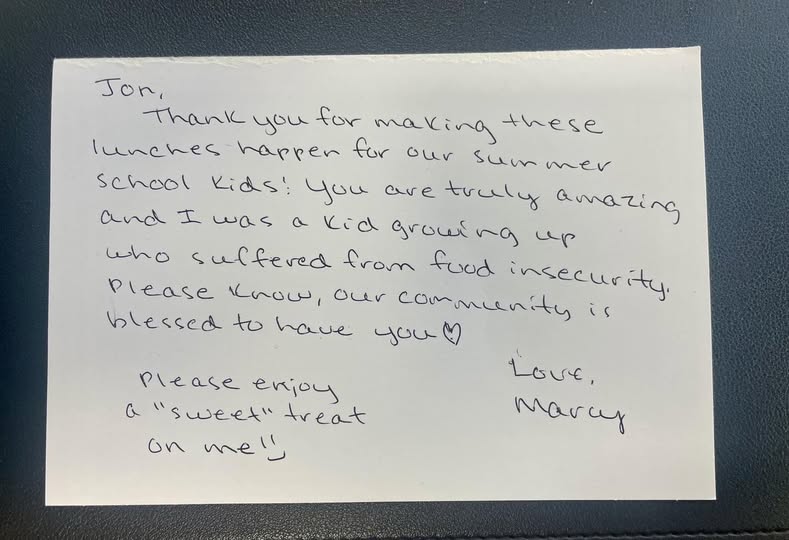 Jon,
Thank you for making these
lunches happen for our summer
school kids! You are truly amazing
and I was a kid growing up
who suffered from food insecurity.
Please know, our community is
blessed to have you♡
Love,
Marcy
Please enjoy
a "sweet" treat
on me!!